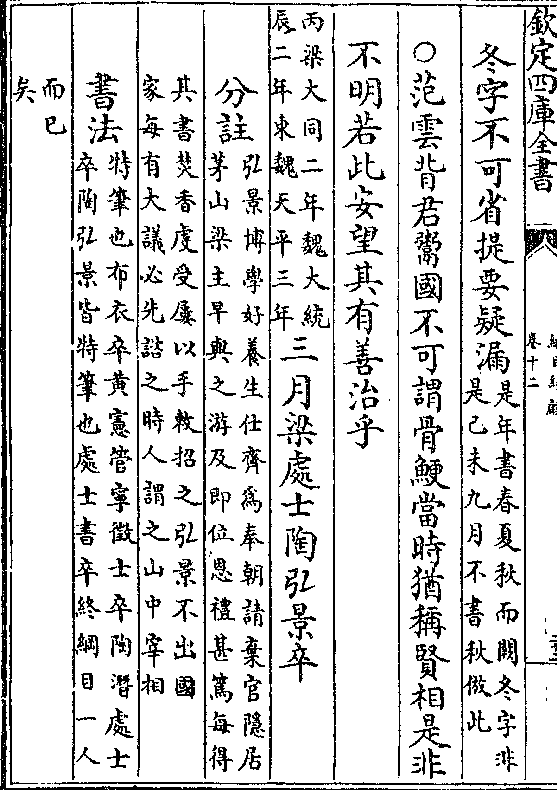 欽定四庫全書
卷十二
冬字不可省提要疑漏
是年書春夏秋而闕冬字非
是己未九月不書秋倣此
○范雲背君鬻國不可謂骨鯁當時猶稱賢相是非
不明若此安望其有善治乎
丙梁大同二年魏大統
辰二年東魏天平三年
三月梁處士陶弘景卒
分註
弘景博學好養生仕齊為奉朝請棄官隱居
茅山梁主早與之游及即位恩禮甚篤每得
其書焚香虔受屢以手敕招之弘景不出國
家每有大議必先諮之時人謂之山中宰相
書法
特筆也布衣卒黃憲管寧徵士卒陶潛處士
卒陶弘景皆特筆也處士書卒終綱目一人
而已
矣